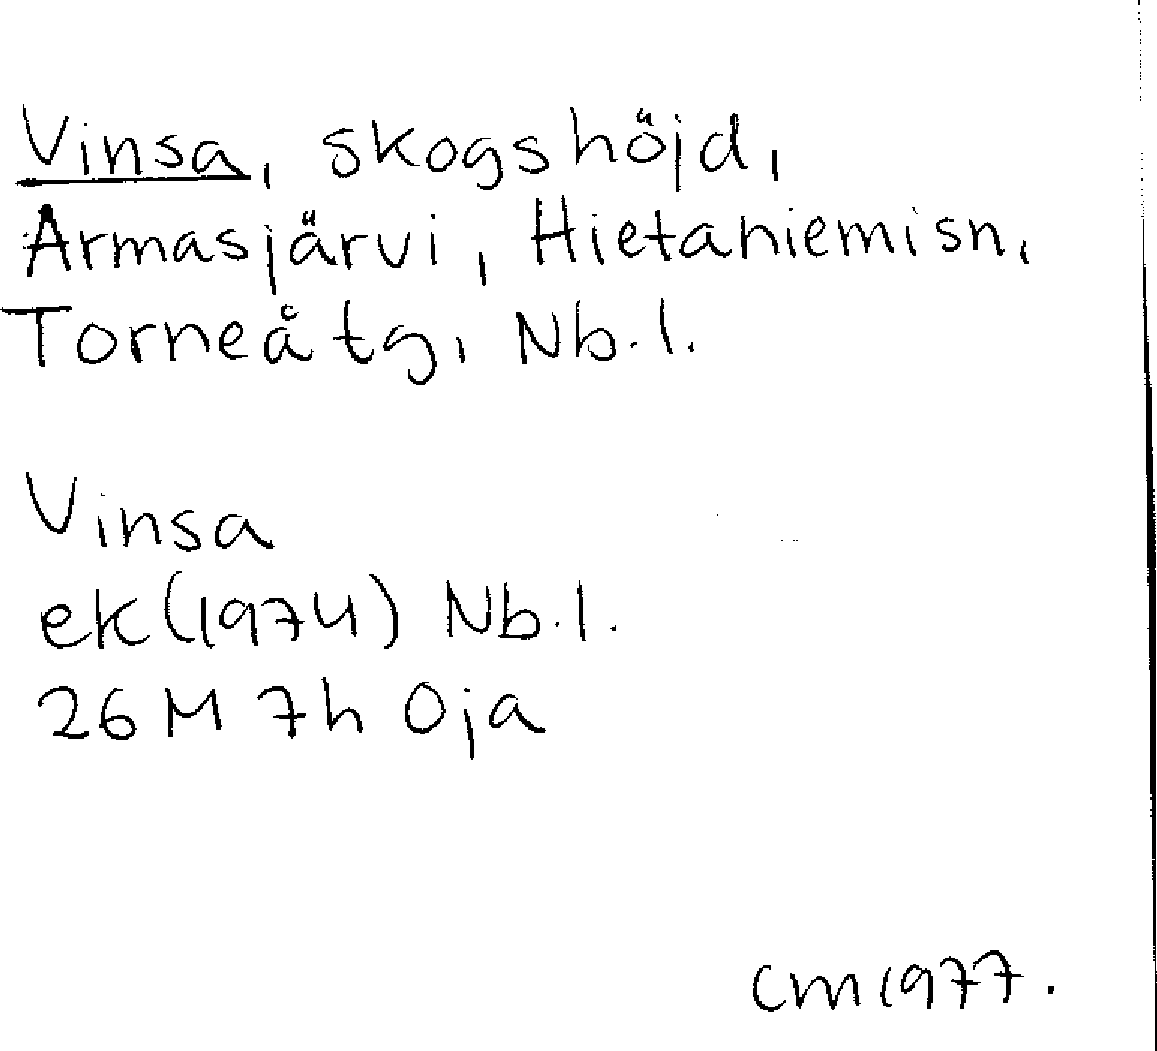 Vinsa, skogshöjd,
Armasjärvi, Hietaniemisn,
Torneå tg, Nb.l.
Vinsa
ek(1974) Nb.l.
26 M 7h Oja
CM1977.